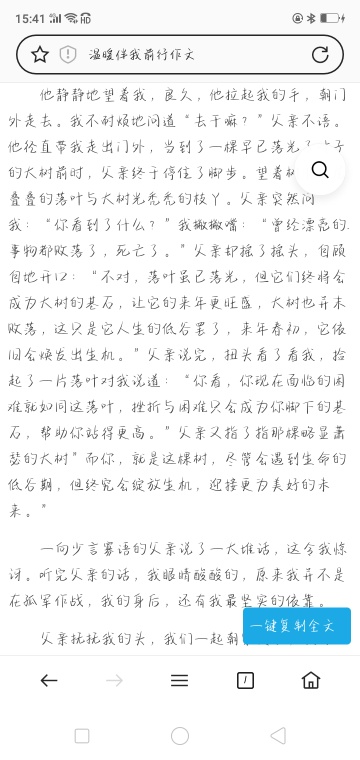 15:41
温暖伴我前行作文
他静静地望着我，良久，他拉起我的手，朝门
外走去。我不耐烦地问道“去干嘛？”父亲不语。
他径直带我走出门外，当到了一棵早已落光了
的大树前时，父亲终于停住了脚步。望着
叠叠的落叶与大树光秃秃的枝丫。父亲突然问
我：“你看到了什么？”我撇撇嘴：“曾经漂亮的
事物都败落了，死亡了。”父亲却摇了摇头，自顾
自地开口：“不对，落叶虽已落光，但它们终将会
成为大树的基石，让它的来年更旺盛，大树也并未
败落，这只是它人生的低谷罢了，来年春初，它依
旧会焕发出生机。”父亲说完，扭头看了看我，捡
起了一片落叶对我说道：“你看，你现在面临的困
难就如同这落叶，挫折与困难只会成为你脚下的基
石，帮助你站得更高。”父亲又指了指那棵略显萧
瑟的大树”而你，就是这棵树，尽管会遇到生命的
低谷期，但终究会绽放生机，迎接更为美好的未
来。”
一向少言寡语的父亲说了一大堆话，这令我惊
讶。听完父亲的话，我眼睛酸酸的，原来我并不是
在孤军作战，我的身后，还有我最坚实的依靠。
一键复制全文
父亲抚抚我的头，我们一起朝